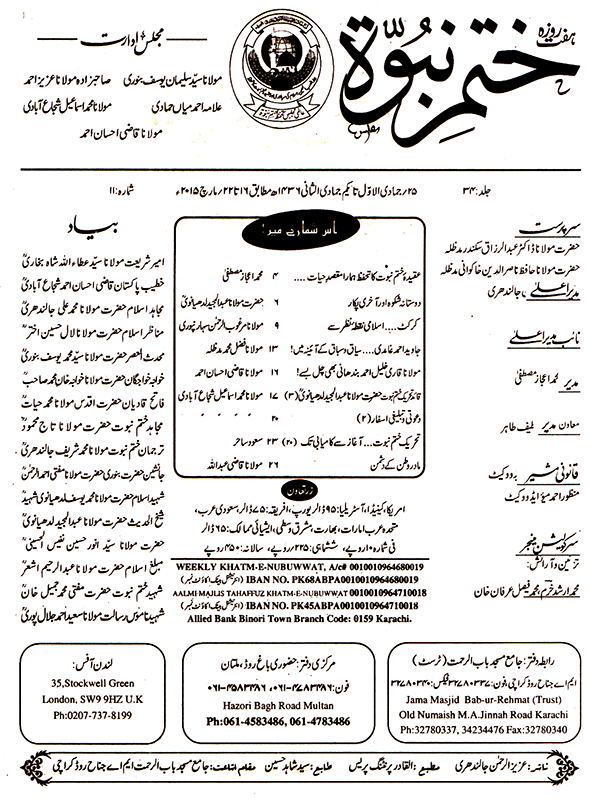 ہفت روزہ
ختم نبوۃ
مجلس ادارت
مولانا سید سلیمان یوسف بنوری صاحبزادہ مولانا عزیز احمد
علامہ احمد میاں حمادی مولانا محمد اسماعیل شجاع آبادی
مولانا قاضی احسان احمد
جلد: ۳۴ ۲۵؍ جمادی الاوّل تا یکم جمادی الثانی ۱۴۳۶ھ مطابق ۱۶ تا ۲۲؍ مارچ ۲۰۱۵ء شمارہ: ۱۱
سرپرست
حضرت مولانا ڈاکٹر عبدالرزاق سکندر مدظلہ
حضرت مولانا حافظ ناصر الدین خاکوانی مدظلہ
مدیر اعلیٰ
جالندھری
نائب مدیر اعلیٰ
مدیر
محمد اعجاز مصطفیٰ
معاون مدیر
طیف طاہر
قانونی مشیر
منظور احمد میو ایڈووکیٹ
سرکولیشن منیجر
تزئین و آرائش:
محمد ارشد خرم، محمد فیصل عرفان خان
اس شمارے میں!
عقیدۂ ختم نبوت کا تحفظ ہمارا مقصدِ حیات.... ۴ محمد اعجاز مصطفیٰ
دوستانہ شکوہ اور آخری پکار ۶ حضرت مولانا عبدالمجید لدھیانویؒ
کرکٹ.... اسلامی نقطۂ نظر سے ۹ مولانا مرغوب الرحمٰن سہارنپوری
جاوید احمد غامدی.... سیاق و سباق کے آئینہ میں! ۱۳ مولانا فضل محمد مدظلہ
مولانا قاری خلیل احمد بندھانی بھی چل بسے! ۱۶ مولانا قاضی احسان احمد
قائد تحریک ختم نبوت حضرت مولانا عبدالمجید لدھیانویؒ (۳) ۱۷ مولانا محمد اسماعیل شجاع آبادی
دعوتی و تبلیغی اسفار (۲) ۲۰
تحریک ختم نبوت.... آغاز سے کامیابی تک (۲۰) ۲۳ سعود ساحر
مادرِ وطن کے دشمن ۲۶ مولانا قاضی عبداللہ
زر تعاون
امریکا، کینیڈا، آسٹریلیا: ۹۵ ڈالر یورپ، افریقہ: ۷۵ ڈالر، سعودی عرب،
متحدہ عرب امارات، بھارت، مشرق وسطیٰ، ایشیائی ممالک: ۶۵ ڈالر
فی شمارہ ۱۰ روپے، ششماہی: ۲۲۵ روپے، سالانہ: ۴۵۰ روپے
WEEKLY KHATM-E-NUBUWWAT, A/c# 0010010964680019
IBAN NO. PK68ABPA0010010964680019 (انٹرنیشنل بینک اکاؤنٹ نمبر)
AALMI MAJLIS TAHAFFUZ KHATM-E-NUBUWWAT 0010010964710018
IBAN NO. PK45ABPA0010010964710018 (انٹرنیشنل بینک اکاؤنٹ نمبر)
Allied Bank Binori Town Branch Code: 0159 Karachi.
بیاد
امیر شریعت مولانا سید عطاء اللہ شاہ بخاریؒ
خطیب پاکستان قاضی احسان احمد شجاع آبادیؒ
مجاہد اسلام حضرت مولانا محمد علی جالندھریؒ
مناظر اسلام حضرت مولانا لال حسین اخترؒ
محدث العصر حضرت مولانا سید محمد یوسف بنوریؒ
خواجہ خواجگان حضرت مولانا خواجہ خان محمد صاحبؒ
فاتح قادیان حضرت اقدس مولانا محمد حیاتؒ
مجاہد ختم نبوت حضرت مولانا تاج محمودؒ
ترجمان ختم نبوت حضرت مولانا محمد شریف جالندھریؒ
جانشین حضرت بنوری حضرت مولانا مفتی احمد الرحمٰنؒ
شہید اسلام حضرت مولانا محمد یوسف لدھیانوی شہیدؒ
شیخ الحدیث حضرت مولانا عبدالمجید لدھیانویؒ
حضرت مولانا سید انور حسین نفیس الحسینیؒ
مبلغ اسلام حضرت مولانا عبدالرحیم اشعرؒ
شہید ختم نبوت حضرت مفتی محمد جمیل خانؒ
شہید ناموس رسالت مولانا سعید احمد جلال پوریؒ
رابطہ دفتر: جامع مسجد باب الرحمت (ٹرسٹ)
ایم اے جناح روڈ کراچی، فون: ۳۲۷۸۰۳۳۷ فیکس: ۳۲۷۸۰۳۴۰
Jama Masjid Bab-ur-Rehmat (Trust)
Old Numaish M.A.Jinnah Road Karachi
Ph:32780337, 34234476 Fax:32780340
مرکزی دفتر: حضوری باغ روڈ، ملتان
فون: ۰۶۱-۴۷۸۳۴۸۶، ۰۶۱-۴۵۸۳۴۸۶
Hazori Bagh Road Multan
Ph:061-4583486, 061-4783486
لندن آفس:
35,Stockwell Green
London, SW9 9HZ U.K
Ph:0207-737-8199
ناشر: عزیز الرحمٰن جالندھری مطبع: القادر پرنٹنگ پریس طابع: سید شاہد حسین مقام اشاعت: جامع مسجد باب الرحمت ایم اے جناح روڈ کراچی